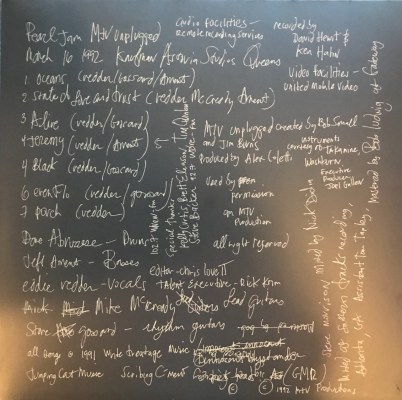 Pearl Jam MTV Unplugged
March 16 1992 Kaufman Astoria Studios Queens
1 Oceans (vedder/Gossard/Ament)
2 state of love and trust (vedder McCready Ament)
3 Alive (vedder/Gossard)
4 Jeremy (vedder/Ament)
4 Black (vedder/Gossard)
6 evenflo (vedder/gossard)
7 porch (vedder)
Dave Abruzzese - Drums
Jeff Ament - Basses
eddie vedder - Vocals
Mike McCready Lead Guitars
Stone gossard - rhythm guitars
all songs © 1991 Write Treatage Music
Jumping Cat Music Scribing C-ment
/GMR)
© © 1992 MTV Productions
audio facilities -
remote recording services
recorded by
David Hewitt &
Ken Hahn
Video facilities -
united Mobile Video
MTV unplugged created by Bob Small
and Jim Burns
Produced by Alex Coletti
instruments
courtesy of Takamine,
Washburn
Executive
Producer
Joel Gallen
used by
permission
on MTV
Production
all right reserved
editor - chris lovett
Talent Executive - Rick Krim
Special thanks
Kelly Curtis,
mixed by Nick DiDia
mixed at southern tracks recording
Atlanta, GA Assistant Tom Tapley
mastered by Bob Ludwig at Gateway